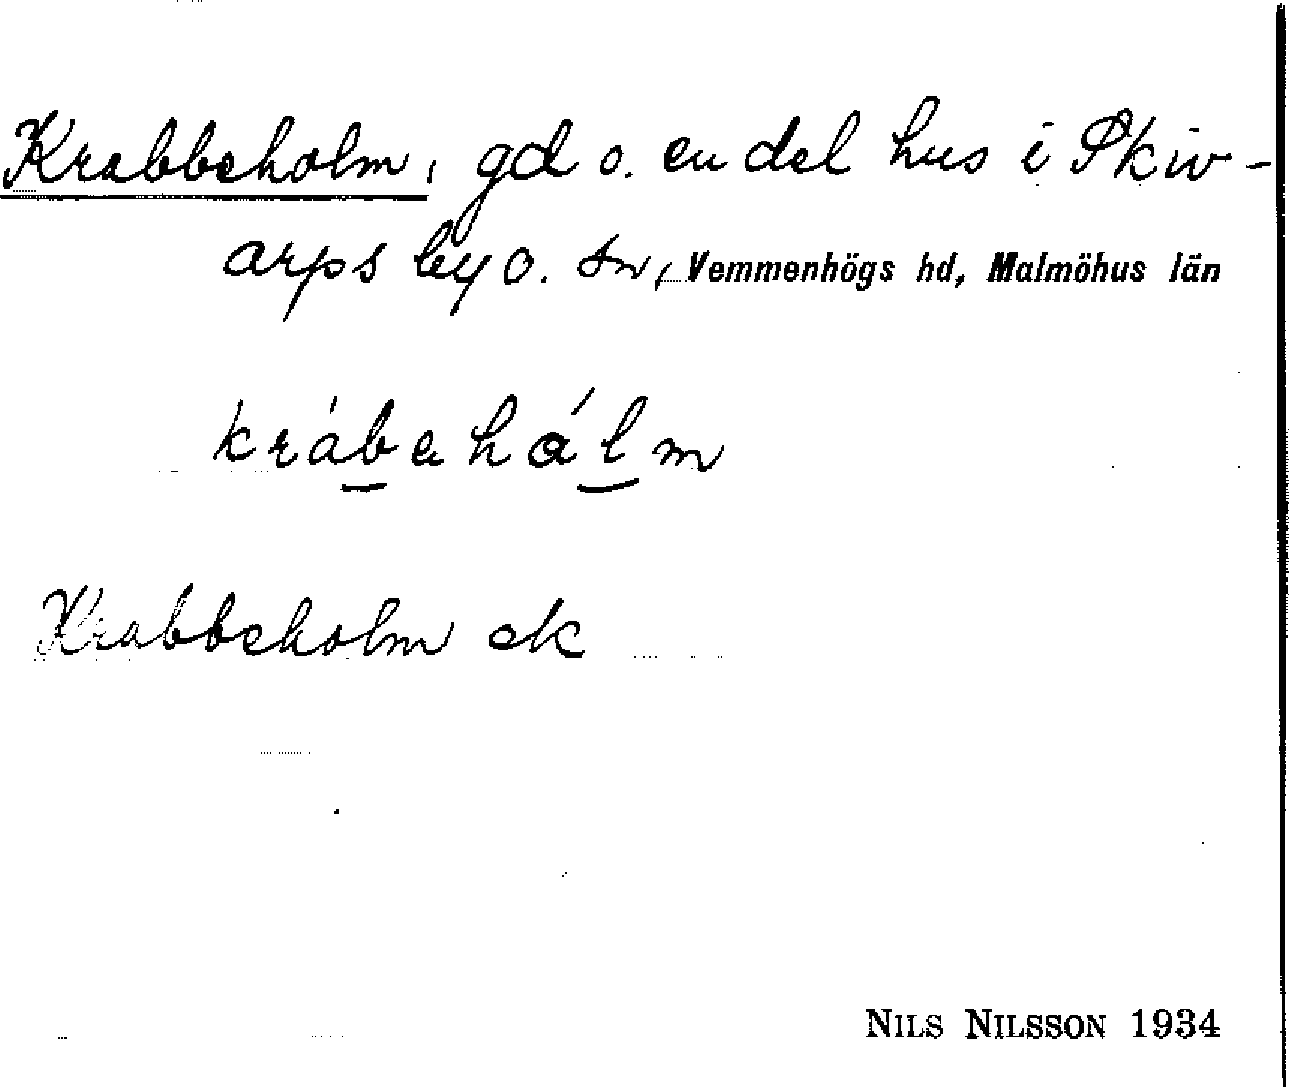 Krabbeholm, gd o. en del hus i Skiv-
arps by o. sn, Vemmenhögs hd, Malmöhus län
krábahálm
Krabbeholm ek
NILS NILSSON 1934